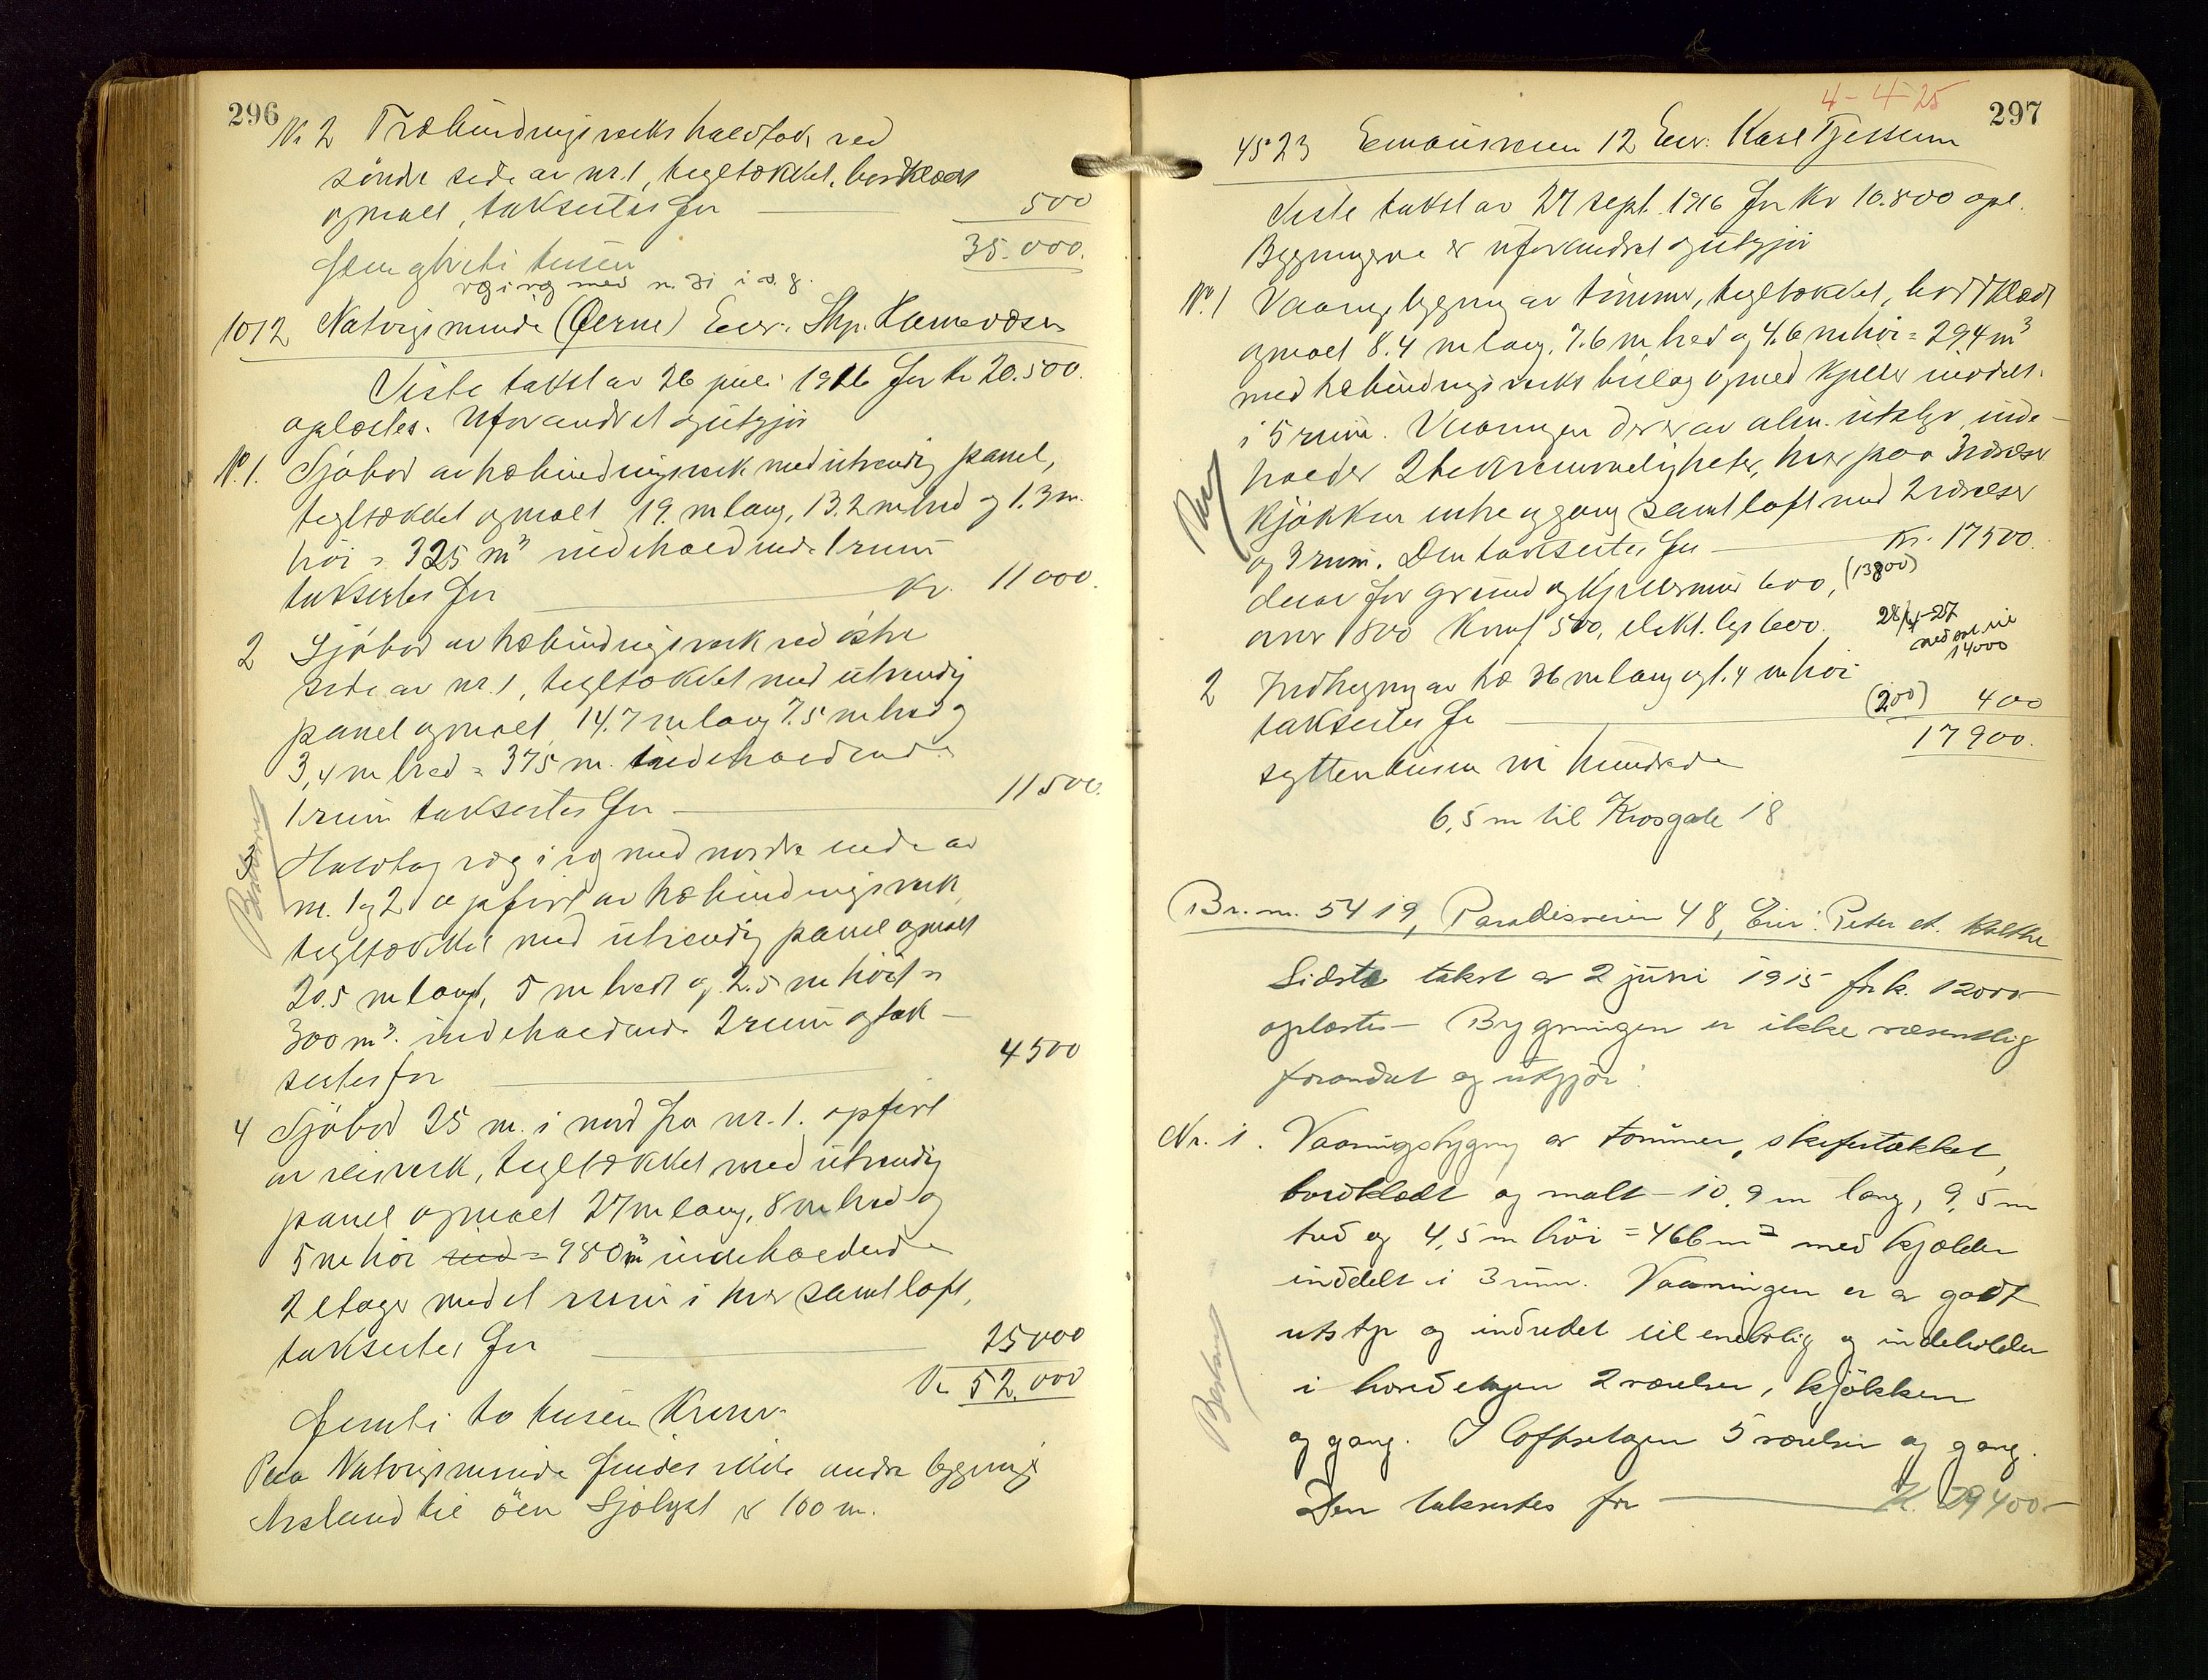 296
Nr 2 Træbindingsverks halvtak ved
söndre side av nr. 1, tegltækket, bordklædt
og malt, takseres for 500
35.000.
fem og tretti tusen
væg i væg med nr. 31 i s. g.
1012 Natvigs minde (Øerne) Eier: Skp.
Siste takst av 26 juli 1916 for kr 20.500.
oplæstes. Uforandret og utgjør
No. 1. Sjøbod av træbindingsverk med utvendig panel,
tegltækket og malt 19. m lang, 13.2 m bred og 1.3 m.
høi = 325 m³ indeholdende 1 rum
takseres for Kr. 11000.
2 Sjøbod av træbindingsverk ved østre
side av nr. 1, tegltækket med utvendig
panel og malt 14.7 m lang 7.5 m bred og
3,4 m bred = 375 m. indeholdende
1 rum takseres for 11500.
Halvtag væg i væg med nordre ende av
nr. 1 og 2 opført av træbindingsverk,
tegltækket med utvendig panel og malt
20.5 m langt, 5 m bredt og 2.5 m høit =
300 m³. indeholdende 2 rum og tak-
seres for 4500
4 Sjøbod 25 m. i nord fra nr. 1. opført
av reisverk, tegltækket med utvendig
panel og malt 27 m lang, 8 m bred og
5 m høi = 980 m³ indeholdende
2 etager med et rum i hver samt loft,
takseres for 25000
Kr 52.000
Femti to tusen kroner
Paa Natvigs minde findes ikke andre bygninger
Avstand til öen Sjölyst er 100 m.
Bestems
4-4-25
297
4523 Emausveien 12 Eier: Karl Tjessem
Siste takst av 27 sept. 1916 for Kr 10.800 opl.
Bygningerne er uforandret og utgjør
No. 1 Vaaningsbygning av tømmer, tegltækket, bordklædt
og malt 8.4 m lang, 7.6 m bred og 4.6 m høi = 294 m³
med træbindingsverks bislag og med kjelder inddelt
i 5 rum. Vaaningen der er av alm. utstyr, inde-
holder 2 bekvemmeligheter, hver paa 3 værelser
kjøkken entre og gang samt loft med 2 værelser
og 3 rum. Den takseres for Kr. 17500.
derav for grund og kjeldermur 600, (13800)
ovner 1800 Komf 500, elekt. lys 600.
28/4-27
14000
2 Indhegning av træ 36 m lang og 1.4 m høi
takseres for (200) 400
17900.
sytten tusen ni hundrede
6,5 m til Krosgate 18
Br. nr. 5419, Paradisveien 48, Eier: Peter
Sidste takst av 2 juni 1915 for k. 12000
oplæstes - Bygningen er ikke væsentlig
forandret og utgjör:
Nr. 1. Vaaningsbygning av tømmer, skifertækket,
bordklædt og malt - 10,9 m lang, 9,5 m
bred og 4,5 m höi = 466 m³ med kjælder
inddelt i 3 rum. Vaaningen er av godt
utstyr og indredet til enebolig og indeholder
i hovedetagen 2 værelser, kjökken
og gang. I loftsetagen 5 værelser og gang.
Den takseres for K. 29400-